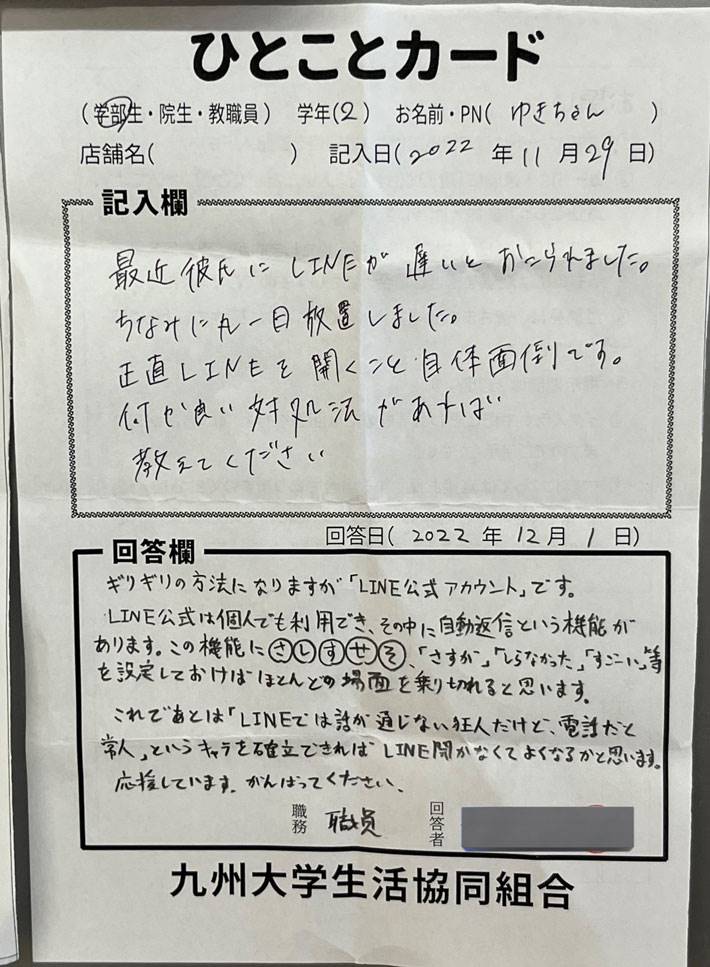 ひとことカード
(学部生・院生・教職員) 学年(2) お名前・PN(ゆきちゃん)
店舗名( ) 記入日(2022年11月29日)
記入欄
最近彼氏にLINEが遅いとおこられました。
ちなみに丸一日放置しました。
正直LINEを開くこと自体面倒です。
何か良い対処法があれば
教えてください
回答日(2022年12月1日)
回答欄
ギリギリの方法になりますが「LINE公式アカウント」です。
LINE公式は個人でも利用でき、その中に自動返信という機能が
あります。この機能にさしすせそ、「さすが」「しらなかった」「すごーい」等
を設定しておけばほとんどの場面を乗り切れると思います。
これであとは「LINEでは話が通じない狂人だけど、電話だと
常人」というキャラを確立できればLINE開かなくてよくなるかと思います。
応援しています。がんばってください。
職務 職員 回答者
九州大学生活協同組合